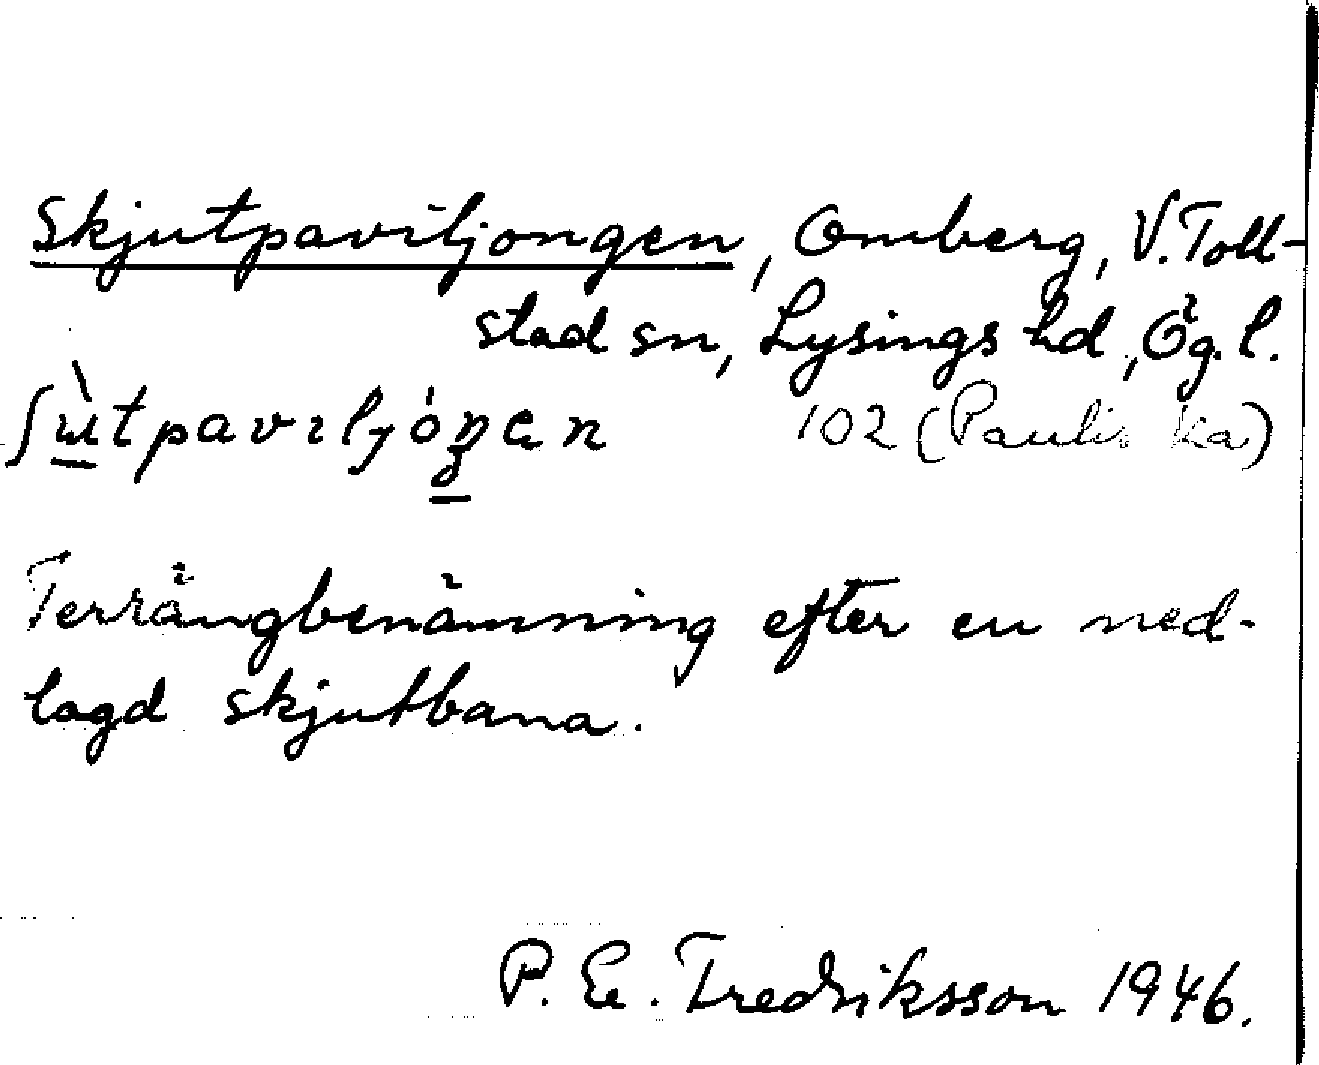 Skjutpaviljongen, Omberg, V. Toll-
stad sn, Lysings hd, Ög. l.
ʃùtpavɪljóŋen 102 (Paulis ka)
Terrängbenämning efter en ned-
lagd skjutbana.
P. E. Fredriksson 1946.